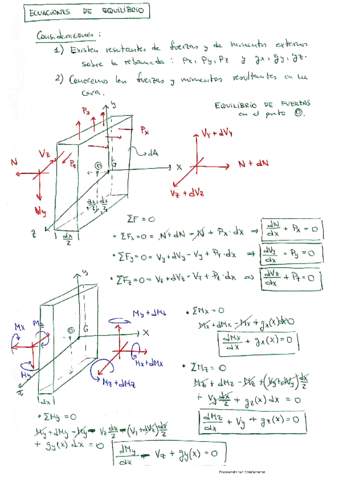 ECUACIONES DE EQUILIBRIO
Consideraciones:
1) Existen resultantes de fuerzas y de momentos externos
sobre la rebanada: Px, Py, Pz y gx, gy, gz.
2) Conocemos las fuerzas y momentos resultantes en una
cara.
EQUILIBRIO DE FUERZAS
en el punto O.
y
Px
Vy + dVy
Vz
dA
N
x
N + dN
Vz + dVz
z
dx/2
ΣF = 0
• ΣFx = 0 = N + dN - N + Px·dx ⇒ dN/dx + Px = 0
• ΣFy = 0 = Vy + dVy - Vy + Py·dx ⇒ dVy/dx + Py = 0
• ΣFz = 0 = Vz + dVz - Vz + Pz·dx ⇒ dVz/dx + Pz = 0
y
My + dMy
• ΣMx = 0
Mx
Mz
G
x
Mx + dMx - Mx + gx(x)dx = 0
dMx/dx + gx(x) = 0
Mx + dMx
My
Mz + dMz
z
• ΣMz = 0
Mz + dMz - Mz + (Vy + dVy) dx/2
+ Vy dx/2 + gz(x) dx = 0
dMz/dx + Vy + gz(x) = 0
• ΣMy = 0
My + dMy - My - Vz dx/2 - (Vz + dVz) dx/2
+ gy(x) dx = 0
dMy/dx - Vz + gy(x) = 0